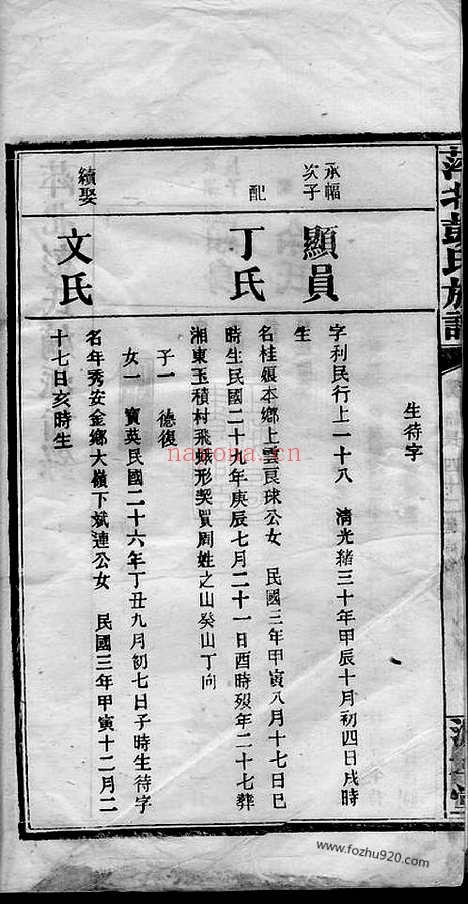 萍北彭氏族譜
生待字
承幅次子
顯員
字利民行上一十八 清光緒三十年甲辰十月初四日戌時
生
配
丁氏
名桂娘本鄉上雲良球公女 民國三年甲寅八月十七日巳
時生民國二十九年庚辰七月二十一日酉時歿年二十七葬
湘東玉積村飛蛾形契買周姓之山癸山丁向
子一 德復
女一 寶英民國二十六年丁丑九月初七日子時生待字
續娶
文氏
名年秀安金鄉大嶺下斌連公女 民國三年甲寅十二月二
十七日亥時生
natona.cn
www.fozhu920.com